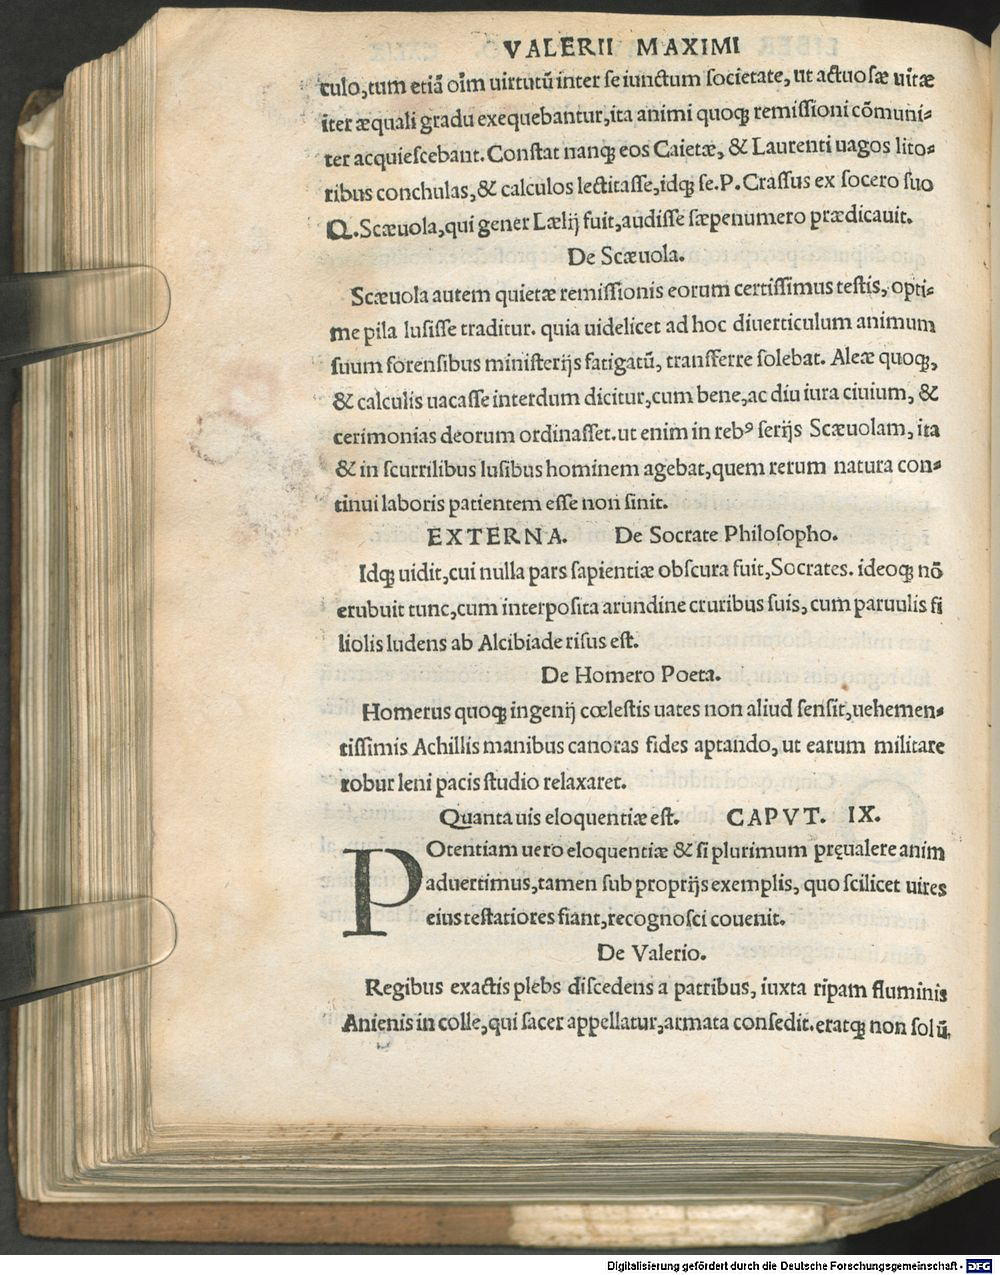 VALERII MAXIMI
culo,tum etiã oĩm uirtutũ inter se iunctum societate, ut actuosæ uitæ
iter æquali gradu exequebantur,ita animi quoqꝫ remissioni cõmuni-
ter acquiescebant. Constat nanqꝫ eos Caietæ, & Laurenti uagos lito-
ribus conchulas,& calculos lectitasse,idqꝫ se.P.Crassus ex socero suo
Q.Scæuola,qui gener Lælij fuit,audisse sæpenumero prædicauit.
De Scæuola.
Scæuola autem quietæ remissionis eorum certissimus testis, opti-
me pila lusisse traditur. quia uidelicet ad hoc diuerticulum animum
suum forensibus ministerijs fatigatũ, transferre solebat. Aleæ quoqꝫ,
& calculis uacasse interdum dicitur,cum bene,ac diu iura ciuium, &
cerimonias deorum ordinasset.ut enim in rebꝰ serijs Scæuolam, ita
& in scurrilibus lusibus hominem agebat,quem rerum natura con-
tinui laboris patientem esse non sinit.
EXTERNA. De Socrate Philosopho.
Idqꝫ uidit,cui nulla pars sapientiæ obscura fuit,Socrates. ideoqꝫ nõ
erubuit tunc,cum interposita arundine cruribus suis, cum paruulis fi
liolis ludens ab Alcibiade risus est.
De Homero Poeta.
Homerus quoqꝫ ingenij cœlestis uates non aliud sensit,uehemen-
tissimis Achillis manibus canoras fides aptando, ut earum militare
robur leni pacis studio relaxaret.
Quanta uis eloquentiæ est. CAPVT. IX.
POtentiam uero eloquentiæ & si plurimum pręualere anim
aduertimus,tamen sub proprijs exemplis, quo scilicet uires
eius testatiores fiant,recognosci couenit.
De Valerio.
Regibus exactis plebs discedens a patribus, iuxta ripam fluminis
Anienis in colle,qui sacer appellatur,armata consedit.eratqꝫ non solũ
Digitalisierung gefördert durch die Deutsche Forschungsgemeinschaft - DFG